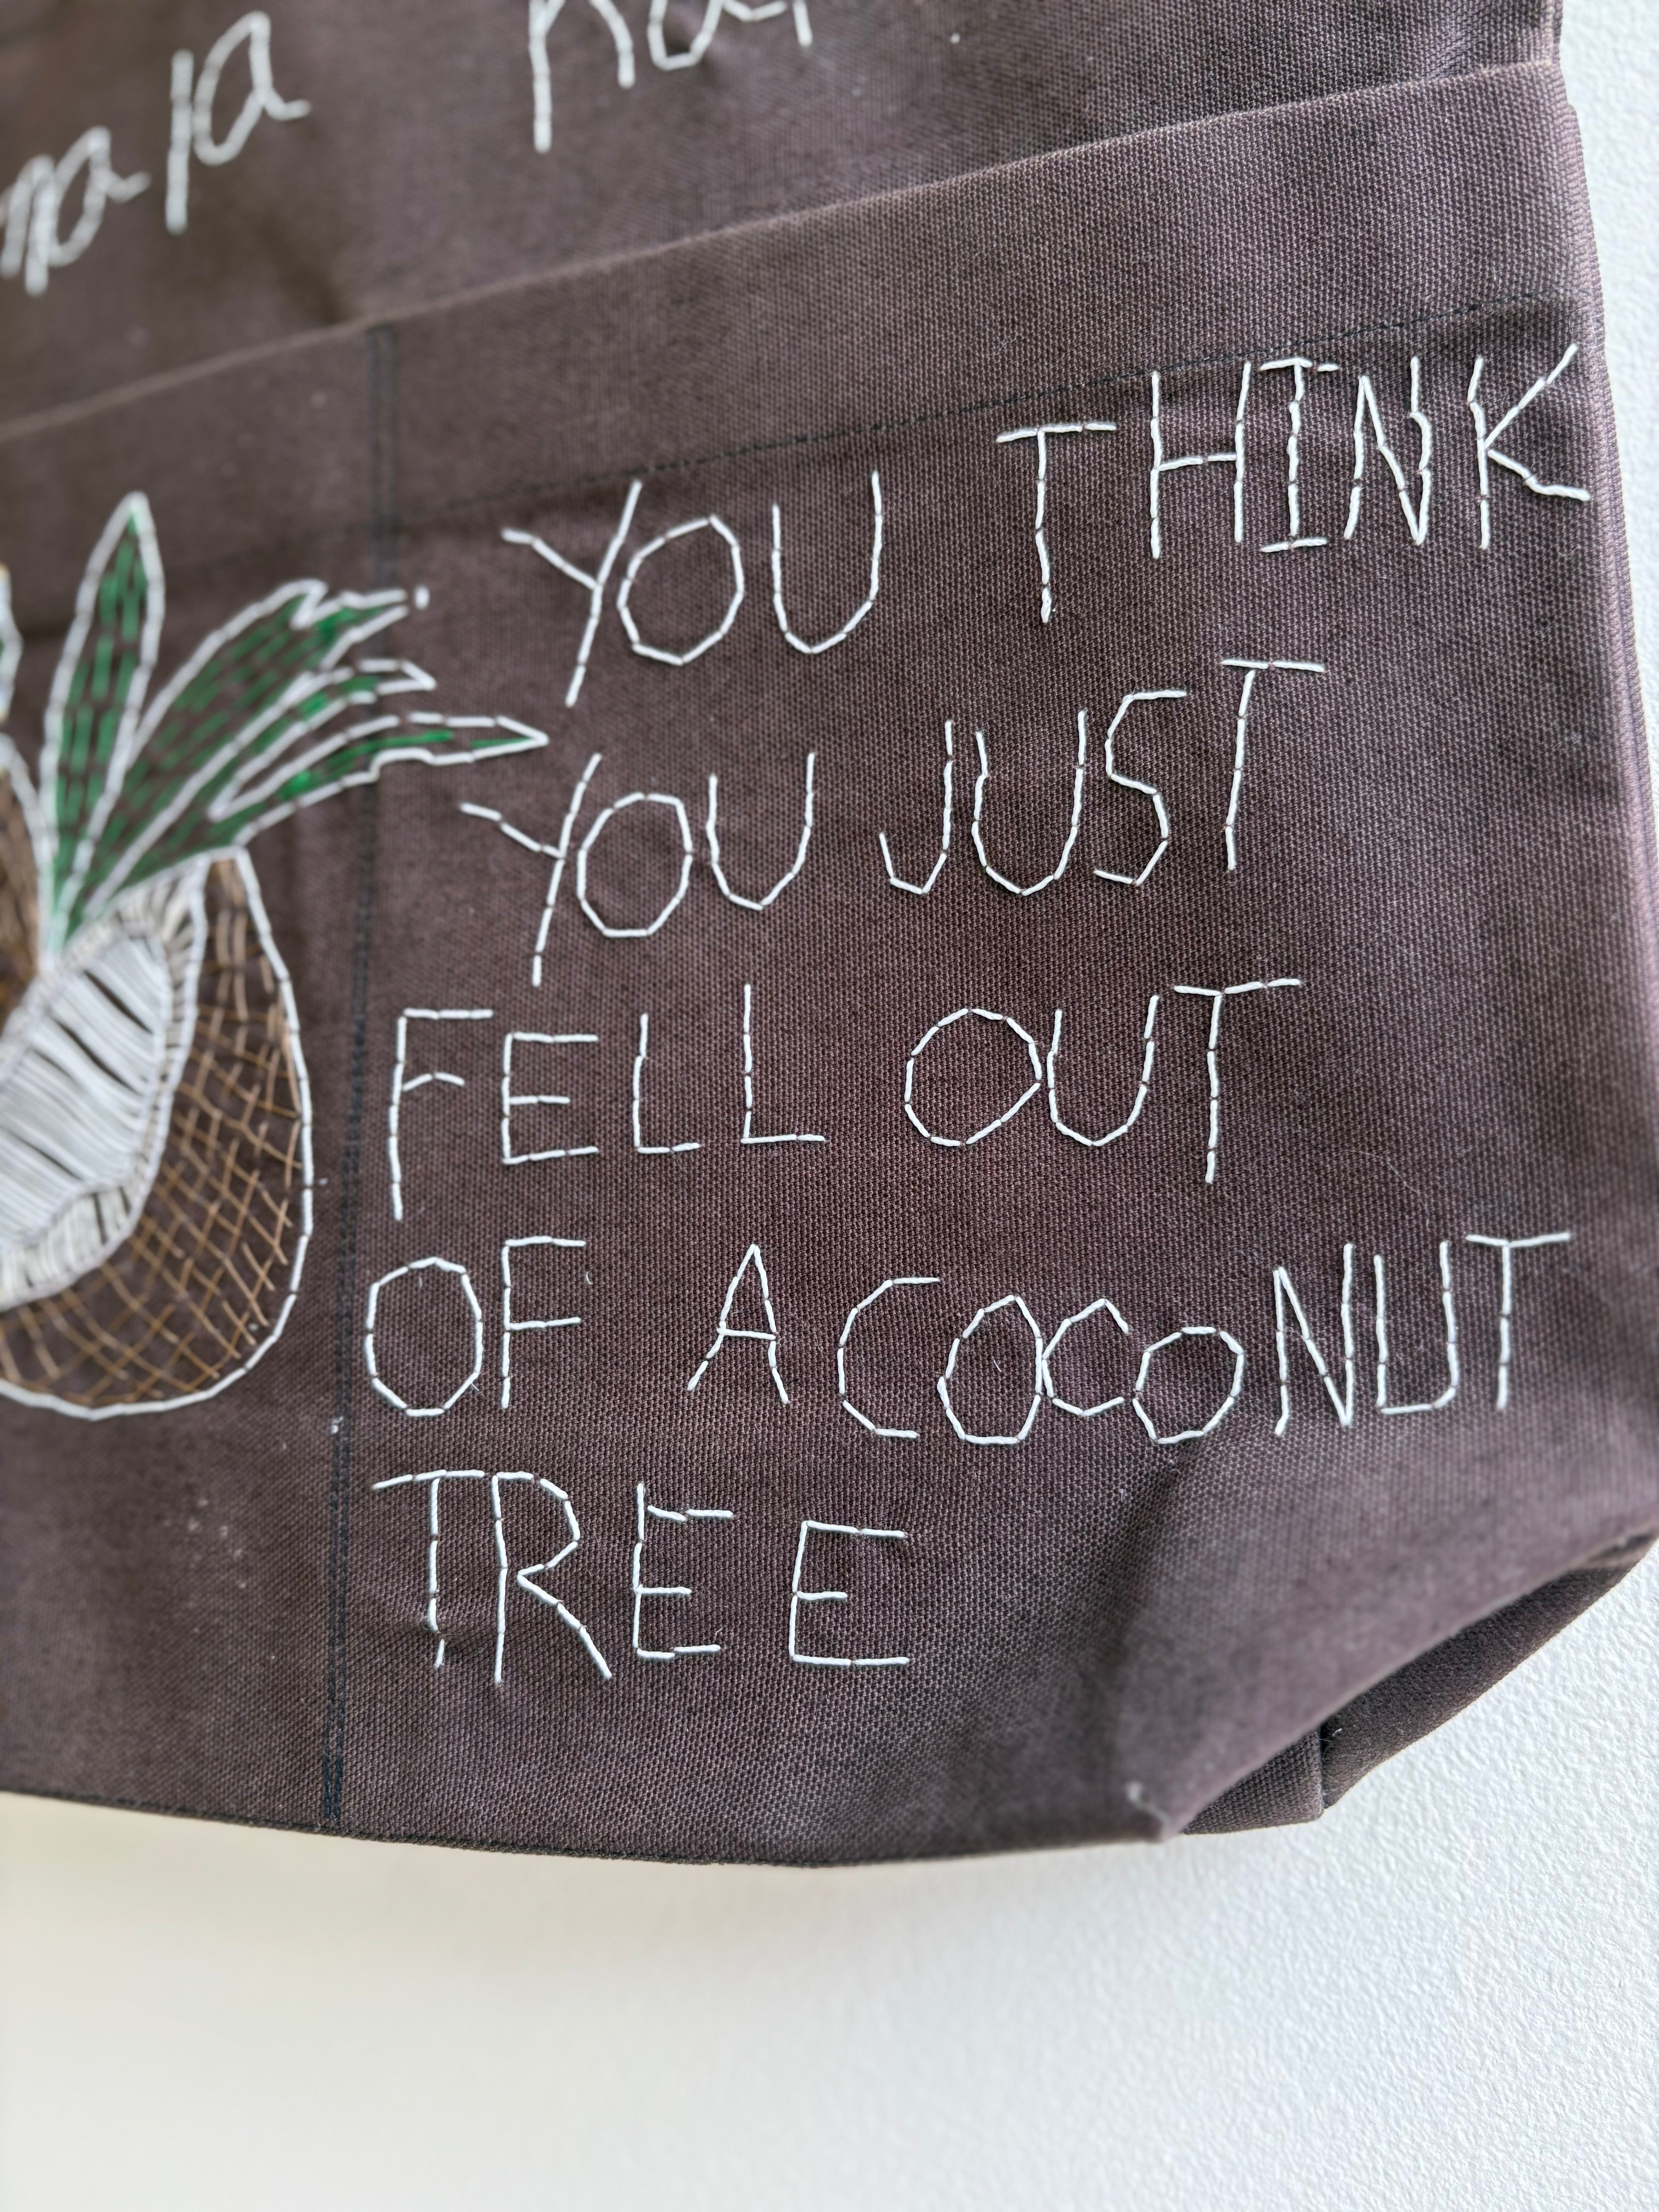 mala
YOU THINK
YOU JUST
FELL OUT
OF A COCONUT
TREE